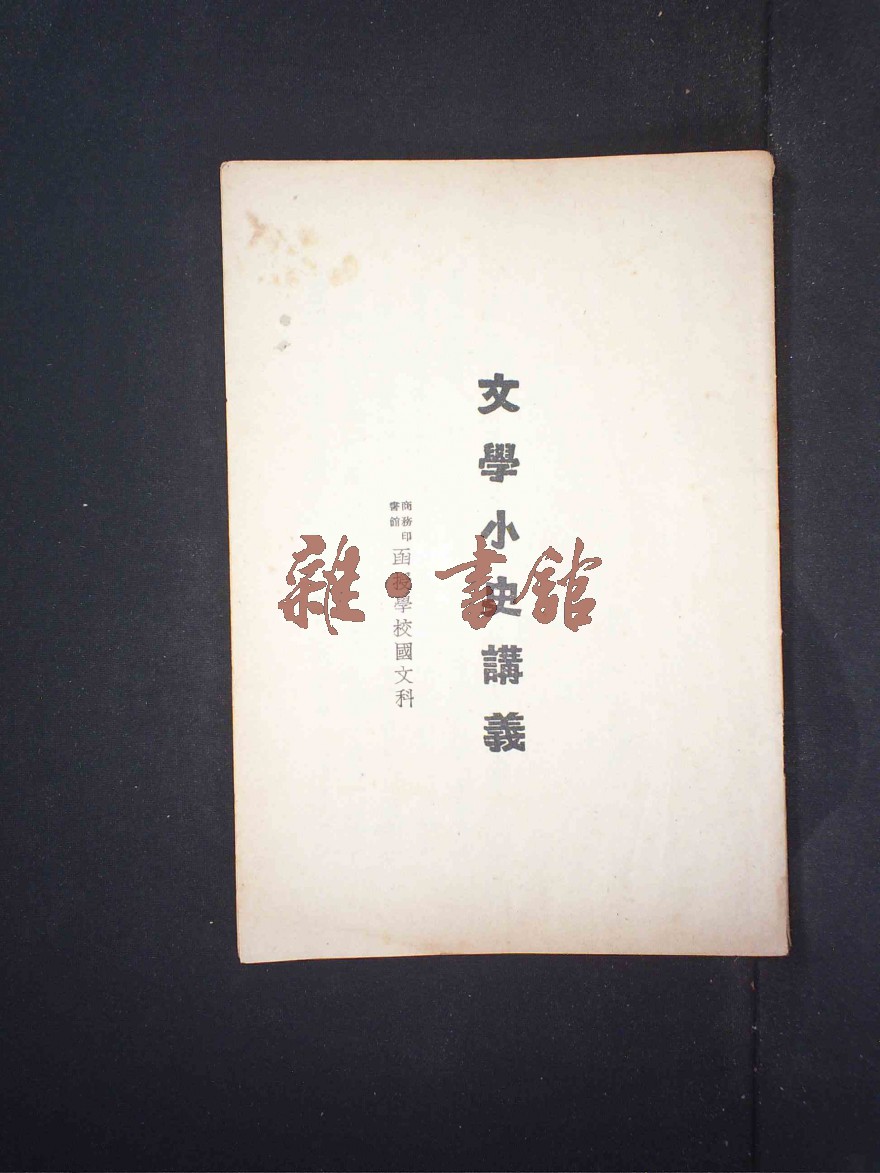 文學小史講義
商務印書館
函授學校國文科
雜·書館